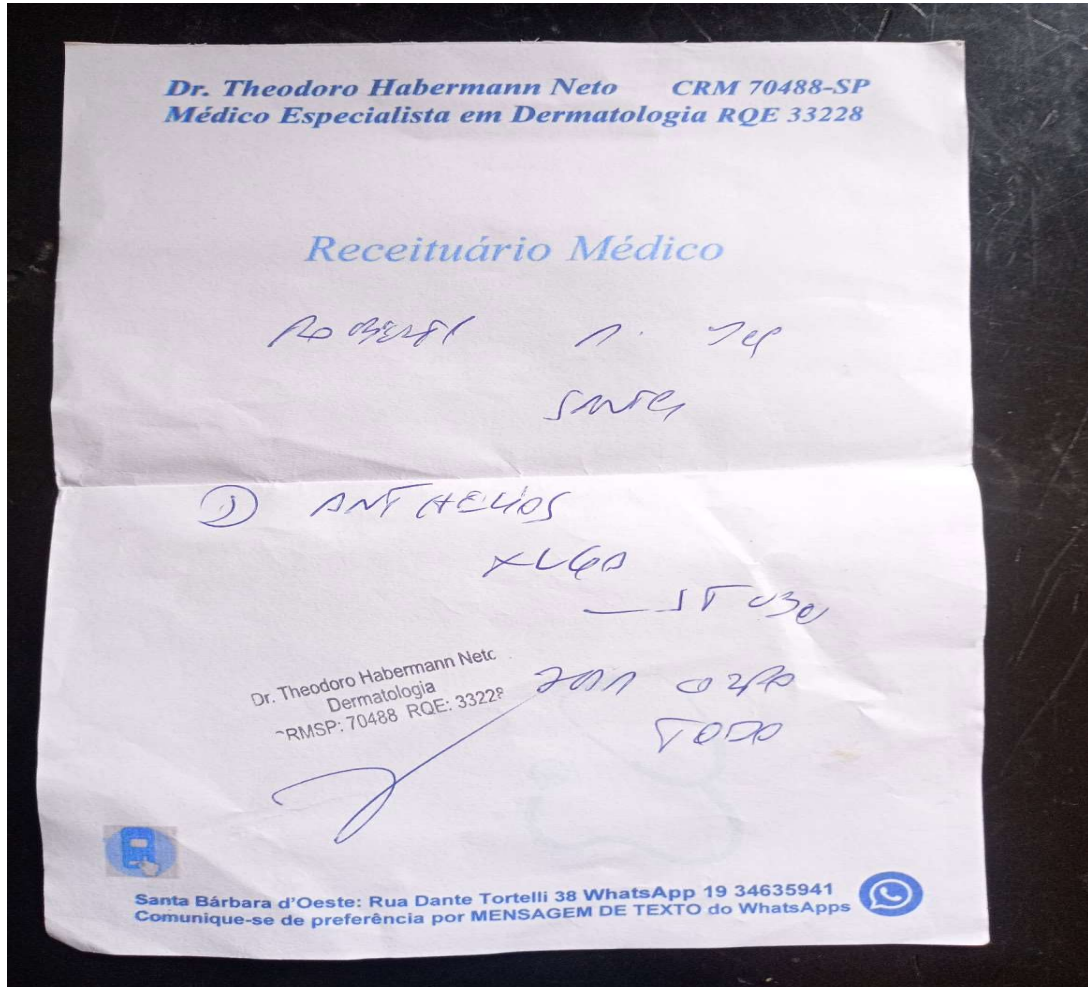 Dr. Theodoro Habermann Neto CRM 70488-SP
Médico Especialista em Dermatologia RQE 33228
Receituário Médico
① ANTHELIOS
XL60
TODO
Dr. Theodoro Habermann Neto
Dermatologia
RMSP: 70488 RQE: 33228
Santa Bárbara d'Oeste: Rua Dante Tortelli 38 WhatsApp 19 34635941
Comunique-se de preferência por MENSAGEM DE TEXTO do WhatsApps